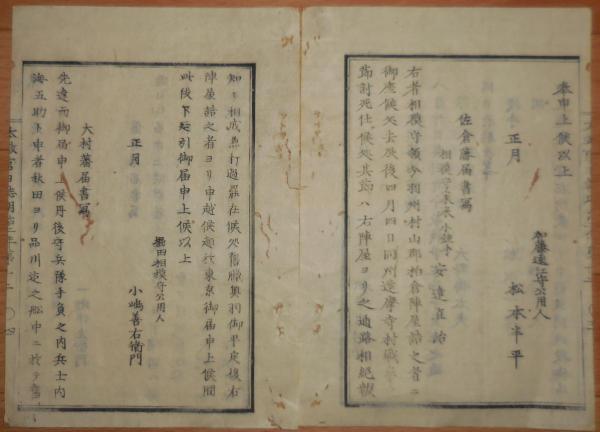 奉申上候以上
正月
加藤遠江守公用人
松本半平
佐倉藩届書写
相模守元家来小鈴才
安達直治
右者相模守領分羽州村山郡柏倉陣屋詰之者ニ
御座候処去辰後四月四日同州達磨寺村戦争之
節討死仕候処其節ハ右陣屋ヨリ之通路相絶
知シ相成兼打過罷在候処舊臘奥羽御平定後右
陣屋詰之者ヨリ申越候趣於東京御届申上候間
此段下
引御届申上候以上
正月
堀田相模守公用人
小嶋善右衛門
大村藩届書写
先達而御届申上候丹後守兵隊手負之内兵士内
海五助
申者秋田ヨリ品川迄之船中ニ於テ